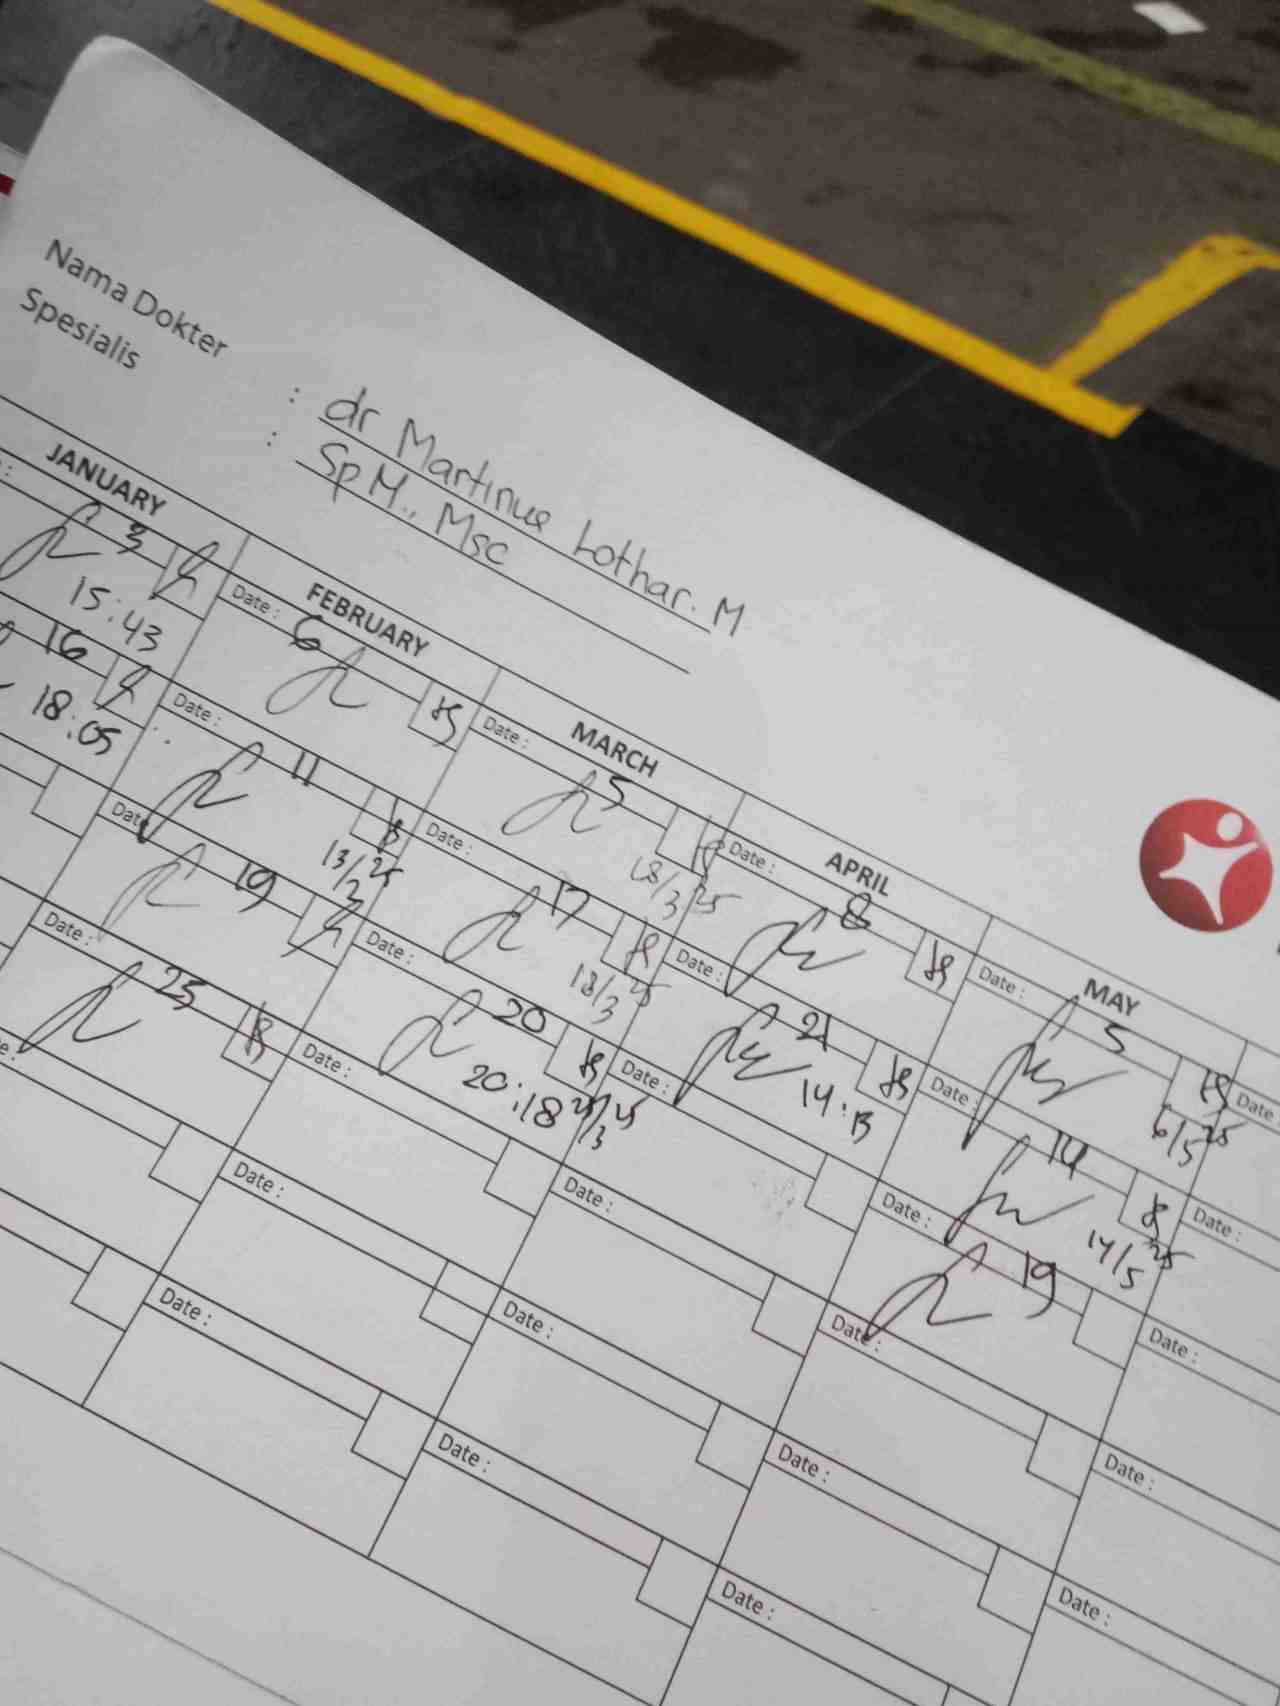 Nama Dokter : dr Martinus Lothar. M
Spesialis : Sp M., Msc
JANUARY FEBRUARY MARCH APRIL MAY
3
15:43
16
18:05
Date : 6
Date : 11
13/2 25
Date : 19
Date : 25
Date : 5
18/3/25
Date : 17
18/3 25
Date : 20
20:18 25/3 25
Date :
Date :
Date :
Date : 8
Date : 21
14:13
Date :
Date :
Date :
Date :
Date : 5
6/5 25
Date : 14
14/5 25
Date : 19
Date :
Date :
Date :
Date
Date :
Date :
Date :
Date :